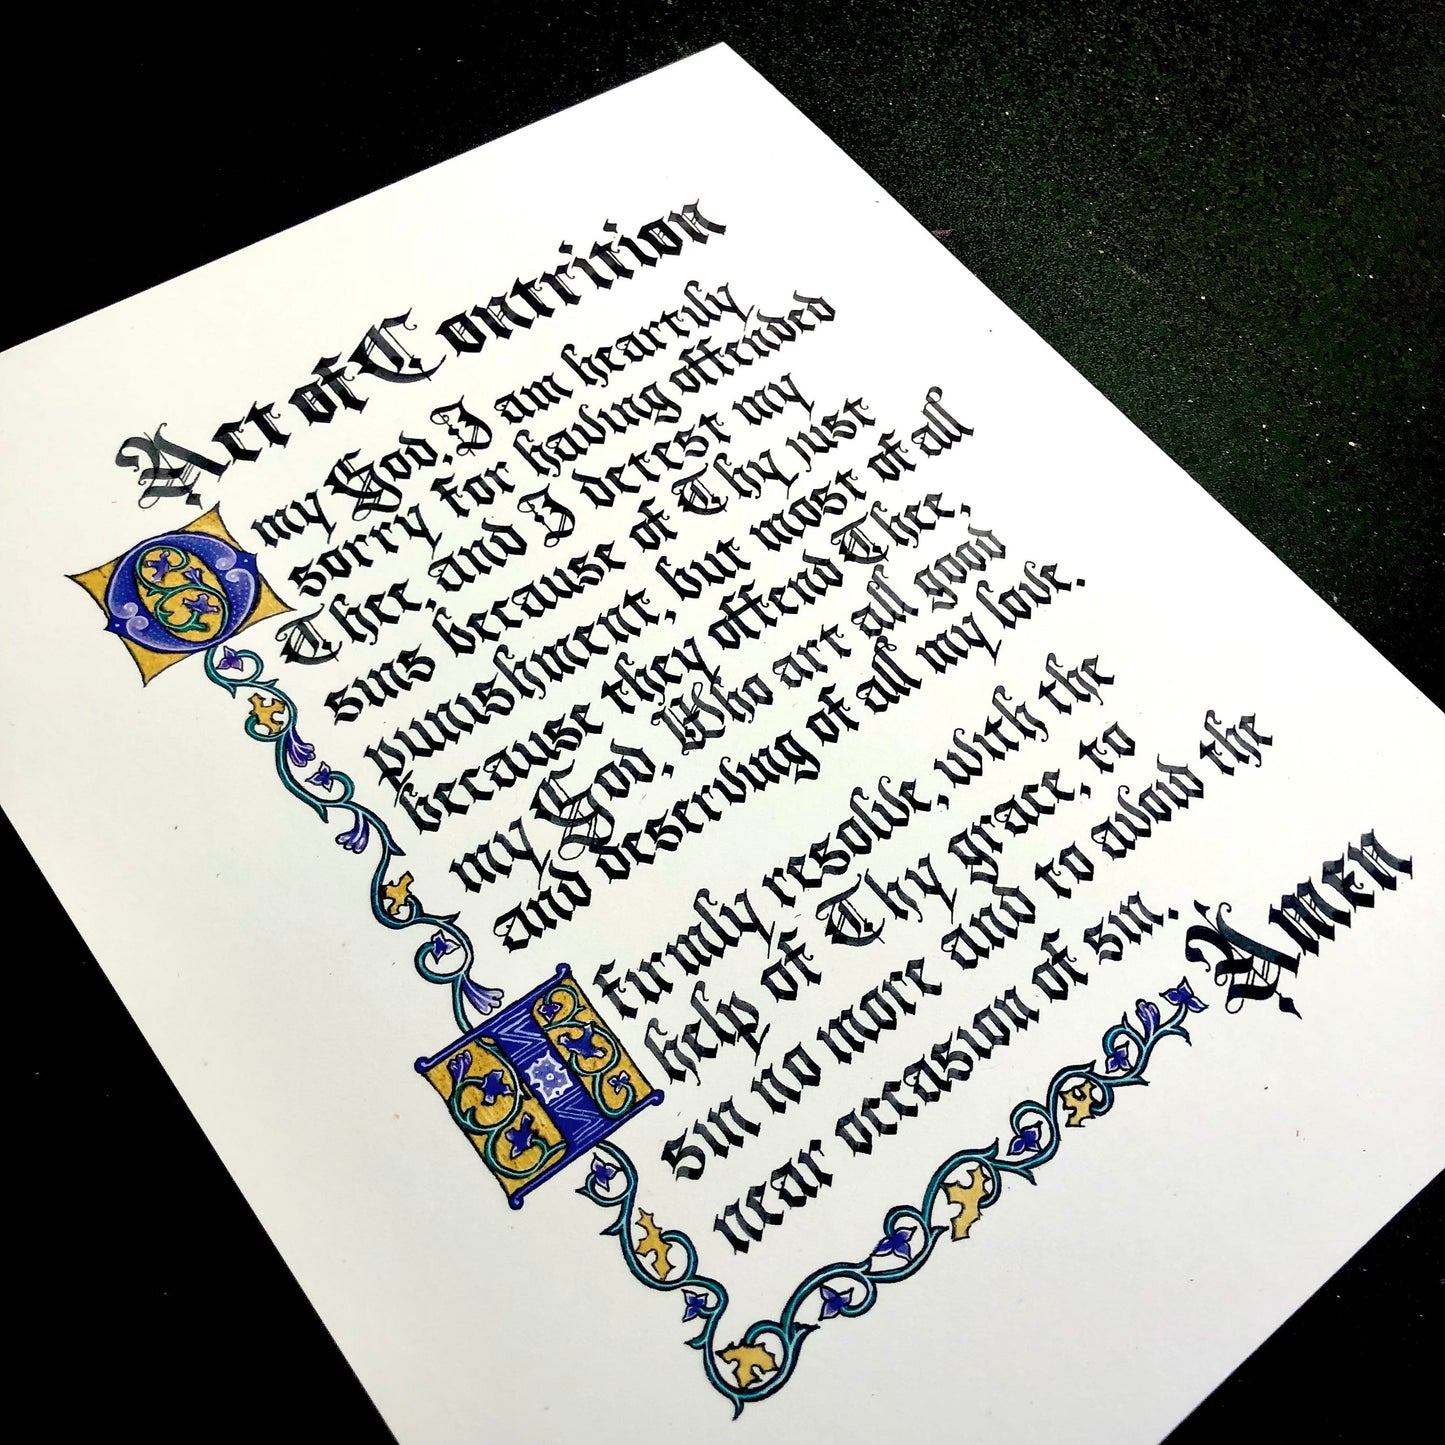 Act of Contrition
O my God, I am heartily
sorry for having offended
Thee, and I detest my
sins because of Thy just
punishment, but most of all
because they offend Thee,
my God, Who art all good
and deserving of all my love.
I firmly resolve, with the
help of Thy grace, to
sin no more and to avoid the
near occasion of sin.
Amen